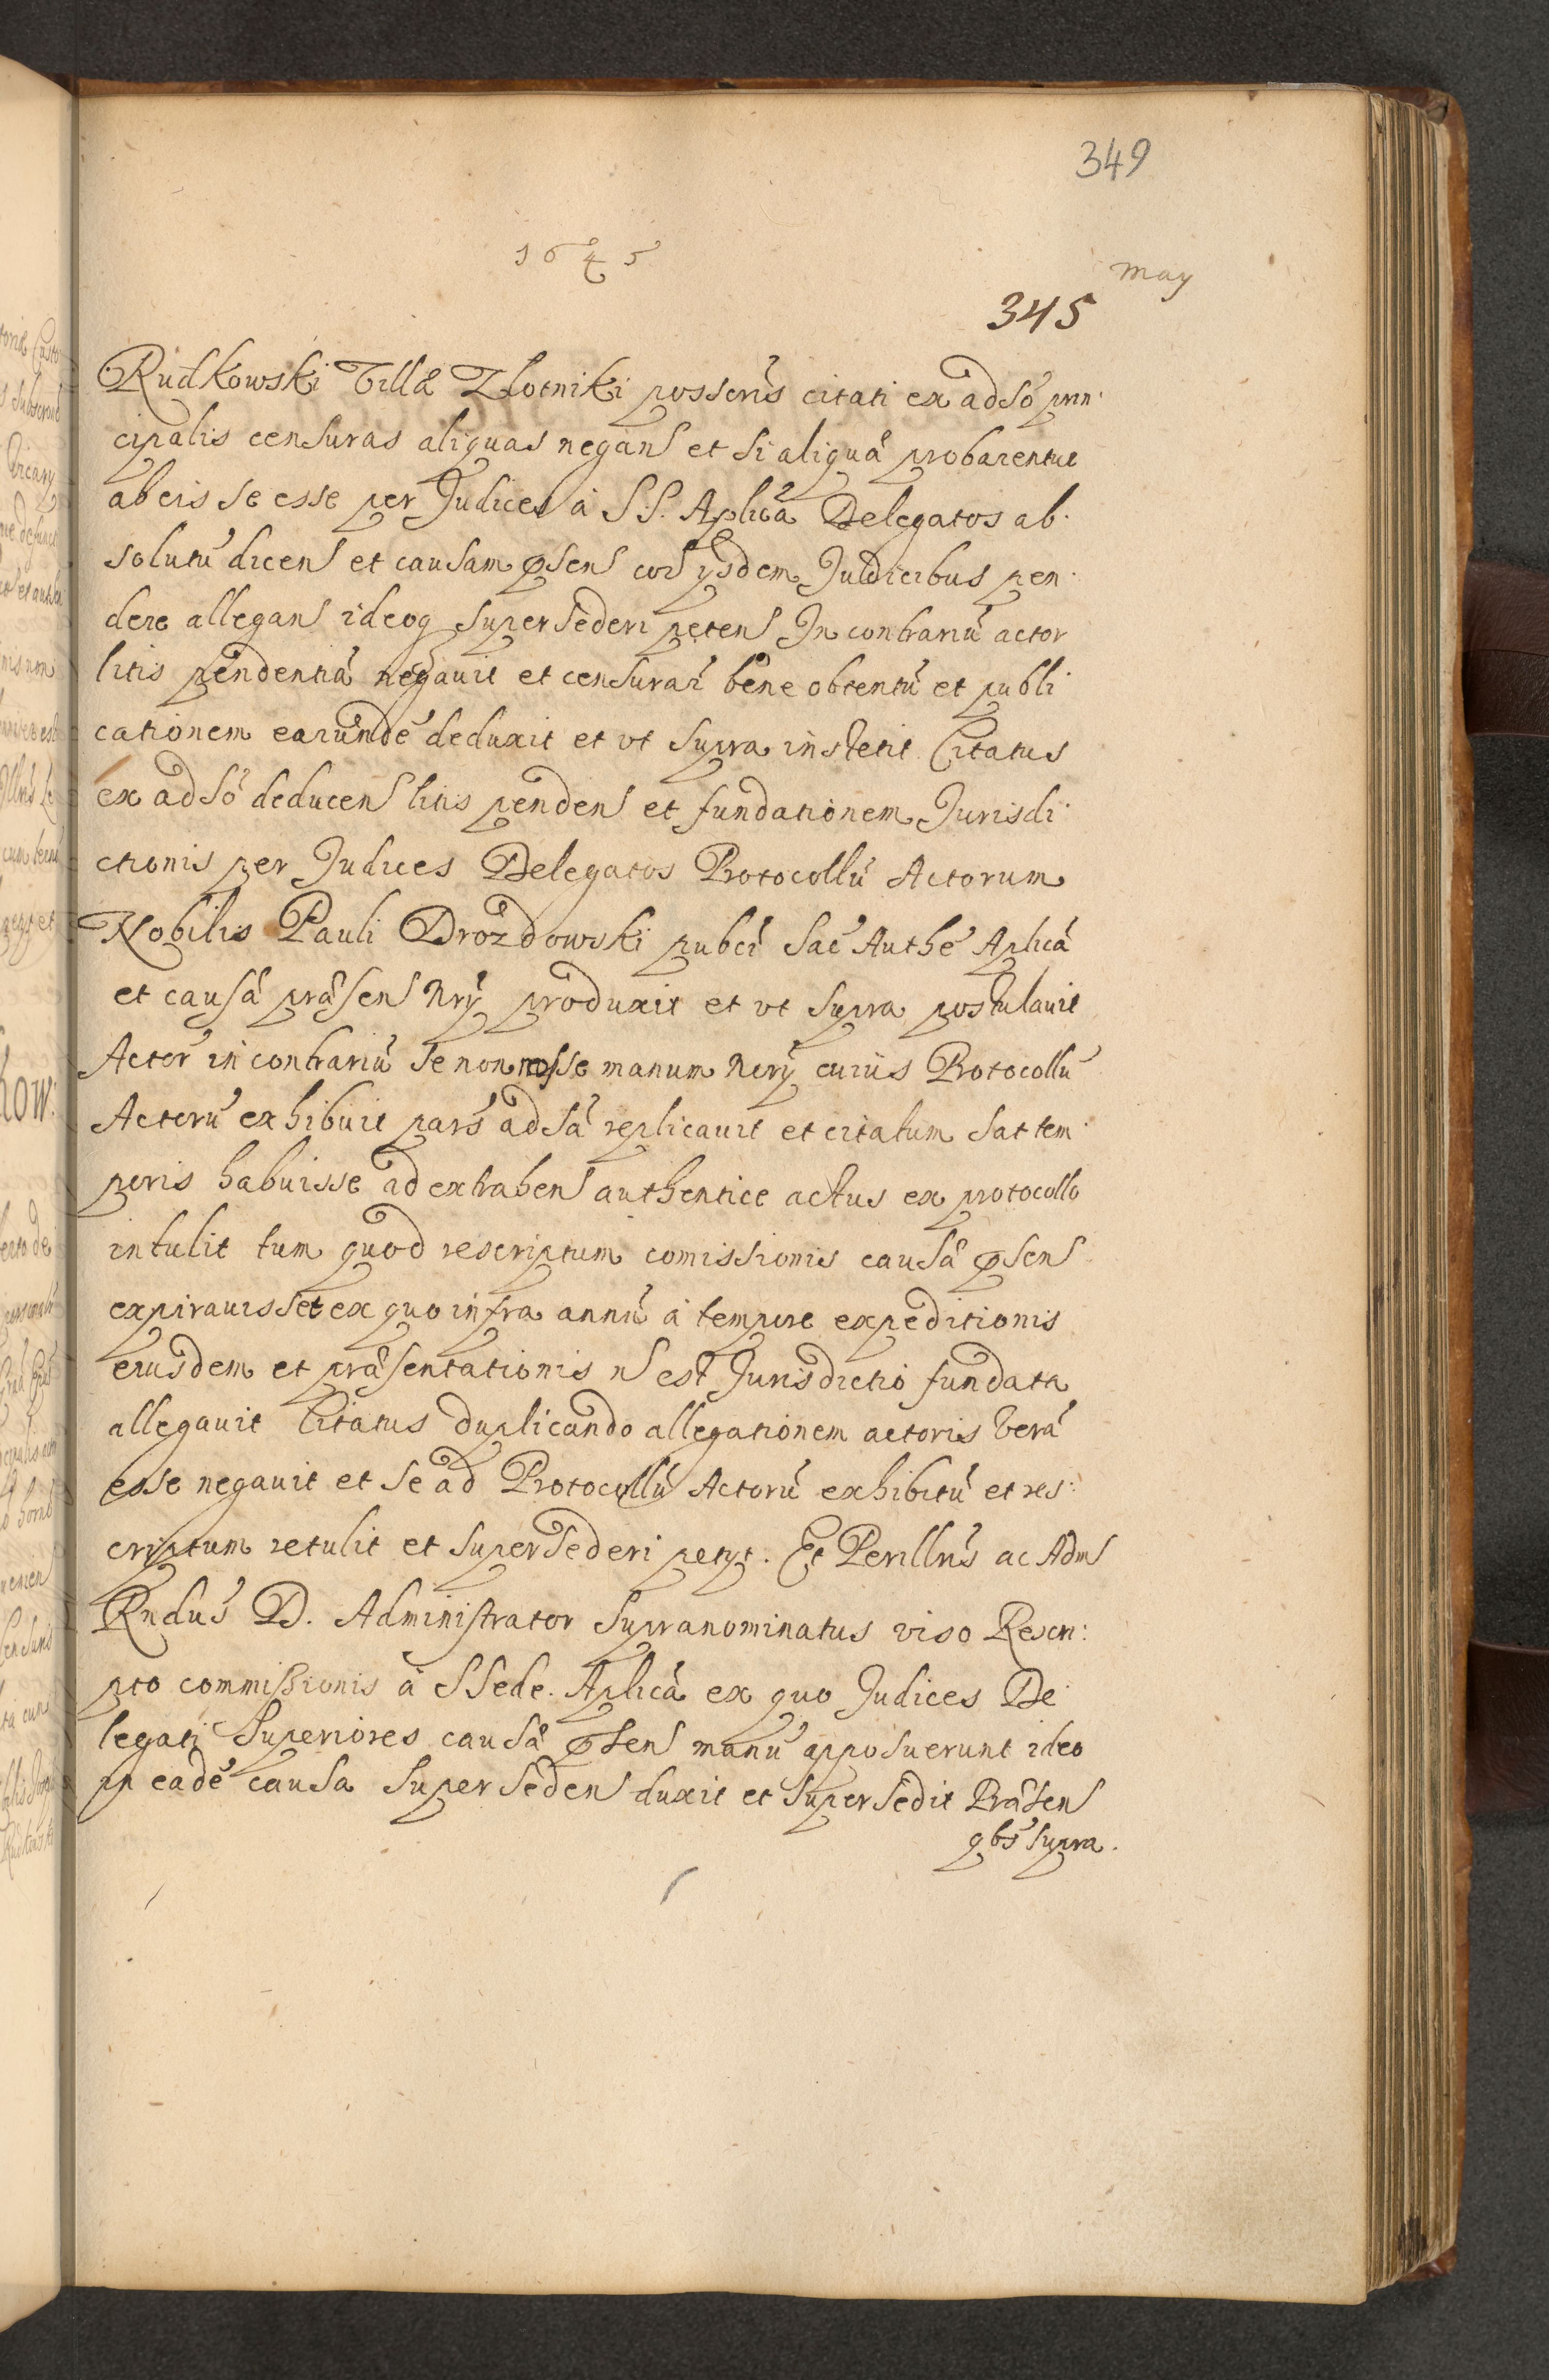 349
1645
May
345
Rudkowski Villæ Zlotniki possoris citati ex adso prin
cipalis censuras aliquas negans et si aliquæ probarentur
ab eis se esse per Judices à S.S. Aplica Delegatos ab
solutū dicens et causam psens cor ysdem Judicibus pen
dere allegans ideoq supersederi petens In contrariū actor
litis pendentiā negavit et censurar bene obtentū et publi
cationem earundē deduxit et vt supra institit Citatus
ex adso deducens litis pendens et fundationem Jurisdi
ctionis per Judices Delegatos Protocollū Actorum
Nobilis Pauli Drozdowski pubci Sac Authe Aplica
et causæ præsens Nry produxit et vt supra postulavit
Actor in contrariū se non nosse manum Nery cuius Protocollū
Actorū exhibuit pars adsa replicavit et citatum sat tem
poris habuisse ad extrahens authentice actus ex protocollo
intulit tum quod rescriptum comissionis causæ psens
expiravisset ex quo infra annū à tempore expeditionis
eiusdem et præsentationis ns est Jurisdictio fundata
allegavit Citatus duplicando allegationem actoris verā
esse negavit et se ad Protocollū Actorū exhibitū et res
criptum retulit et supersederi petyt. Et Perillris ac Adms
Rndus D. Administrator supranominatus viso Rescri:
pto commissionis à SSede. Aplica ex quo Judices De
legati Superiores causæ psens manū apposuerunt ideo
in eadē causa supersedens duxit et supersedit Præsens
qbs supra.